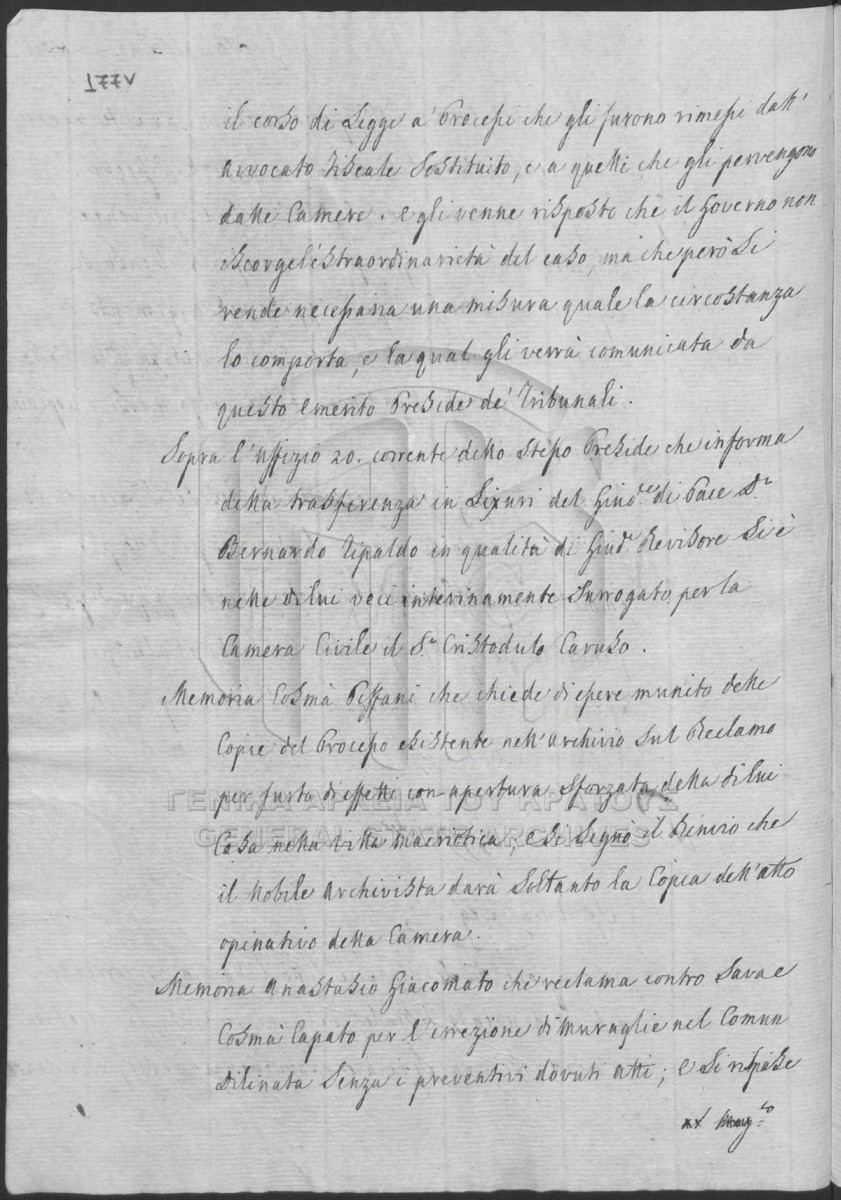 177v
il corso di Legge a' Processi che gli furono rimessi dall'
avvocato Fiscale Sostituito, e a quelli che gli pervengono
dalle Camere. e gli venne risposto che il Governo non
iscorge l'estraordinarietà del caso, ma che però si
rende necessaria una misura quale la circostanza
lo comporta, e la qual gli verrà comunicata da
questo emerito Preside de' Tribunali.
Sopra l'Uffizio 20. corrente dello stesso Preside che informa
della trasferenza in Lixuri del Giud.ce di Pace D.r
Bernardo Tipaldo in qualità di Giud.e Revisore si è
nelle di lui veci interinamente surrogato per la
Camera Civile il S.r Cristodulo Caruso.
Memoria Cosmà Peffani che chiede di essere munito delle
Copie del Processo esistente nell'archivio sul Reclamo
per furto di effetti con apertura sforzata della di lui
Casa nella Villa Macriotica, e si segnò il Rinvio che
il Nobile Archivista darà soltanto la Copia dell'atto
opinativo della Camera.
Memoria Anastasio Giacomato che reclama contro Sava e
Cosmà Capato per l'errezione di muraglie nel Comun
Dilinata senza i preventivi dovuti atti; e si rispose
ΓΕΝΙΚΑ ΑΡΧΕΙΑ ΤΟΥ ΚΡΑΤΟΥΣ
GENERAL STATE ARCHIVES